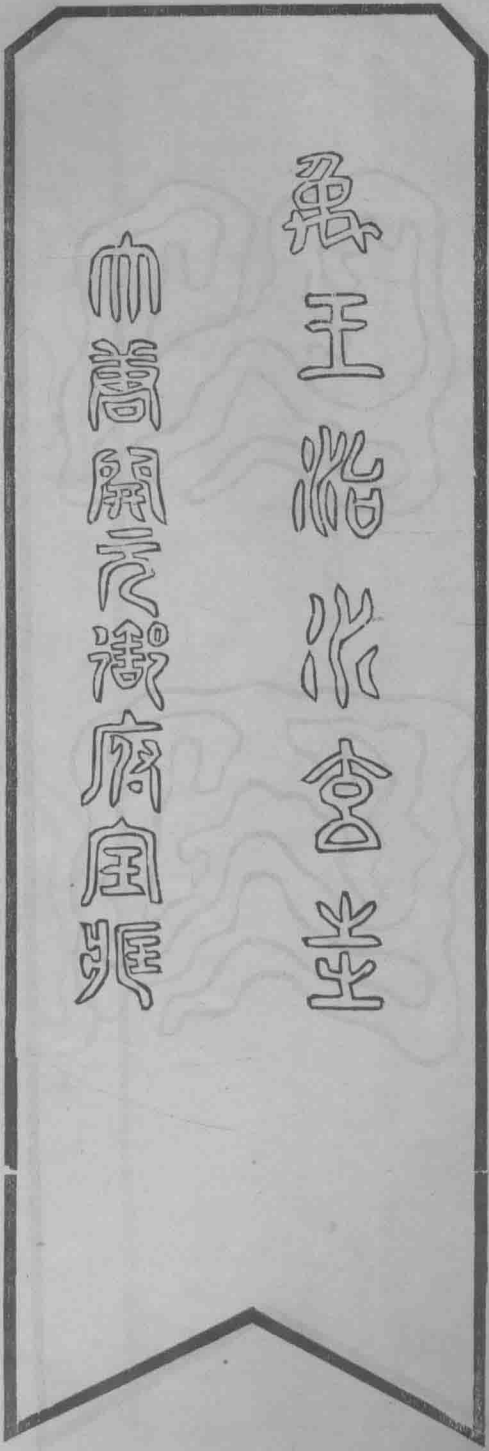 禹王治水玄圭
大唐開元御府宝臧